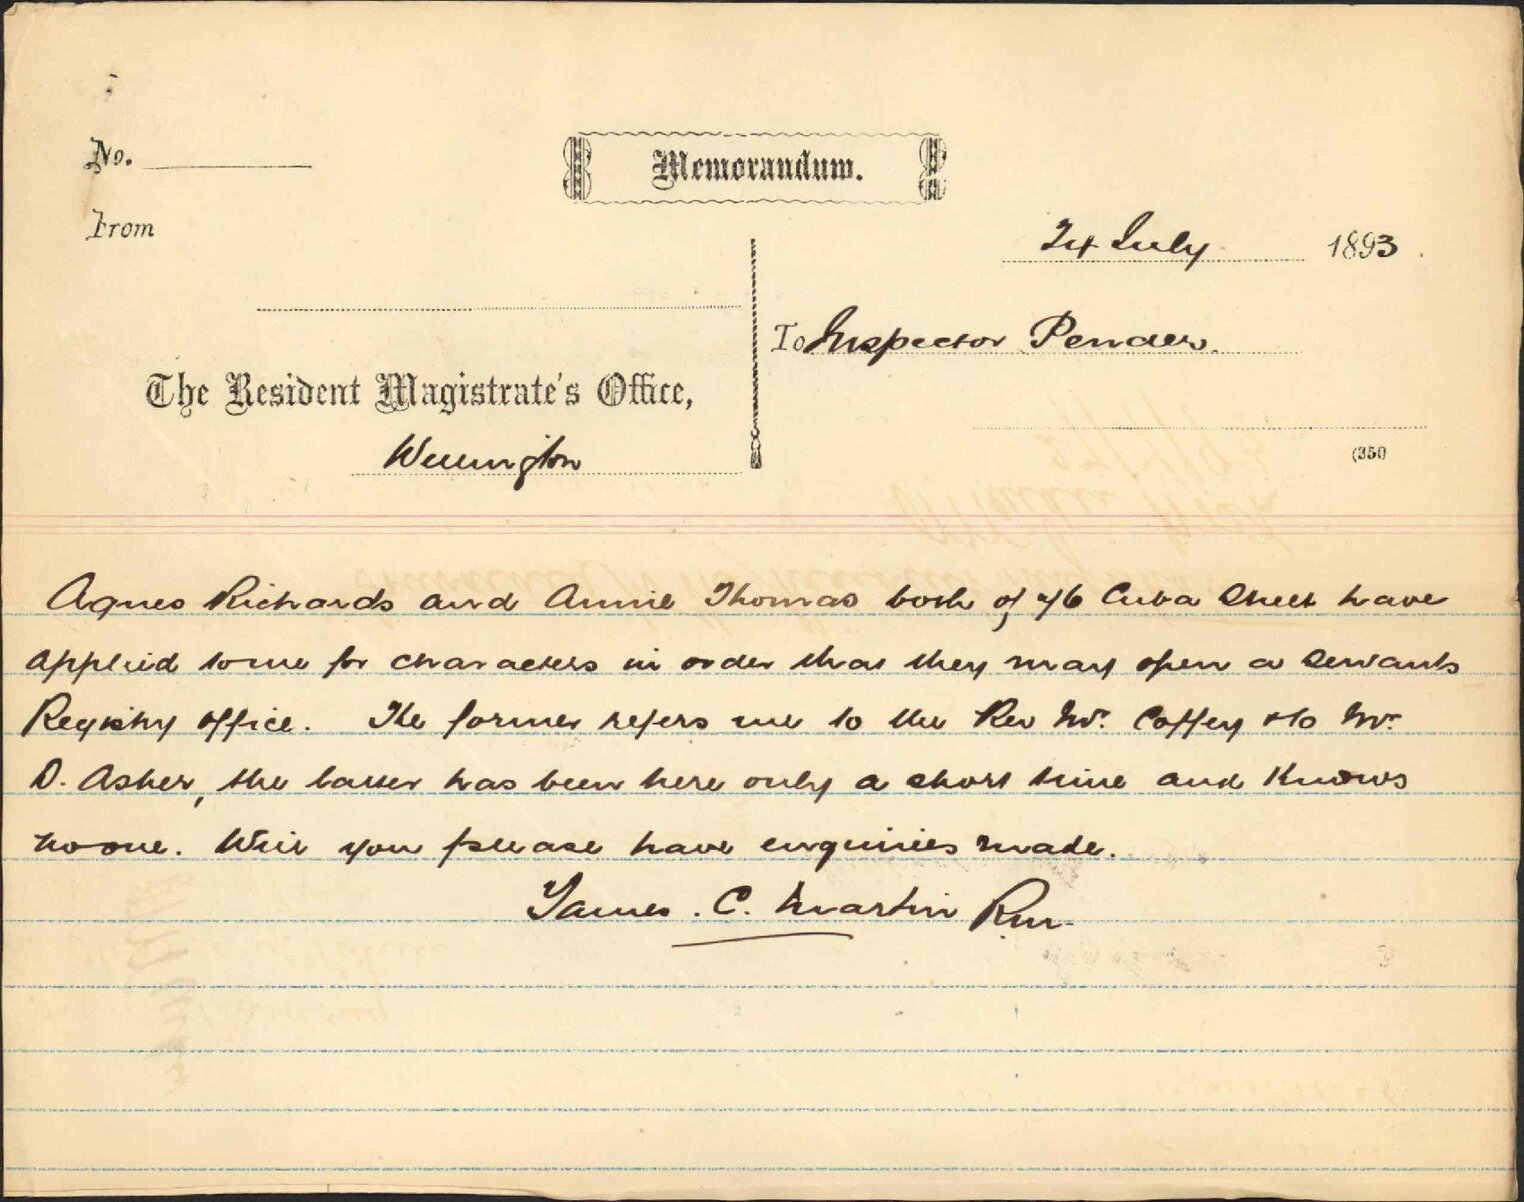 No.
Memorandum.
From
24 July 1893.
To Inspector Pender.
The Resident Magistrate's Office,
Wellington
(350
Agnes Richards and Annie Thomas both of 76 Cuba Street have
applied to me for characters in order that they may open a Servants
Registry office. The former refers me to the Rev Mr. Coffey & to Mr.
D. Asher, the latter has been here only a short time and knows
no one. Will you please have enquiries made.
James. C. Martin RM.